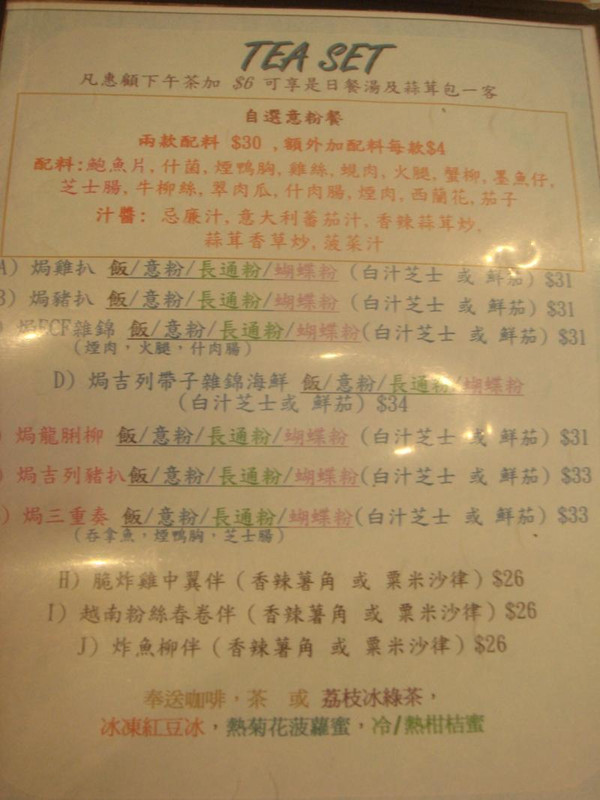 TEA SET
凡惠顧下午茶加 $6 可享是日餐湯及蒜茸包一客
自選意粉餐
兩款配料 $30 , 額外加配料每款$4
配料:鮑魚片, 什菌, 煙鴨胸, 雞絲, 蜆肉, 火腿, 蟹柳, 墨魚仔,
芝士腸, 牛柳絲, 翠肉瓜, 什肉腸, 煙肉, 西蘭花, 茄子
汁醬: 忌廉汁, 意大利蕃茄汁, 香辣蒜茸炒,
蒜茸香草炒, 菠菜汁
A) 焗雞扒 飯/意粉/長通粉/蝴蝶粉 (白汁芝士 或 鮮茄) $31
) 焗豬扒 飯/意粉/長通粉/蝴蝶粉 (白汁芝士 或 鮮茄) $31
焗ECF雜錦 飯/意粉/長通粉/蝴蝶粉(白汁芝士 或 鮮茄) $31
(煙肉,火腿,什肉腸)
D) 焗吉列帶子雜錦海鮮 飯/意粉/長通粉/蝴蝶粉
(白汁芝士或 鮮茄) $34
) 焗龍脷柳 飯/意粉/長通粉/蝴蝶粉 (白汁芝士 或 鮮茄) $31
) 焗吉列豬扒飯/意粉/長通粉/蝴蝶粉(白汁芝士 或 鮮茄) $33
) 焗三重奏 飯/意粉/長通粉/蝴蝶粉(白汁芝士 或 鮮茄) $33
(吞拿魚,煙鴨胸,芝士腸)
H) 脆炸雞中翼伴 (香辣薯角 或 粟米沙律) $26
I) 越南粉絲春卷伴 (香辣薯角 或 粟米沙律) $26
J) 炸魚柳伴 (香辣薯角 或 粟米沙律) $26
奉送咖啡,茶 或 荔枝冰綠茶,
冰凍紅豆冰,熱菊花菠蘿蜜,冷/熱柑桔蜜